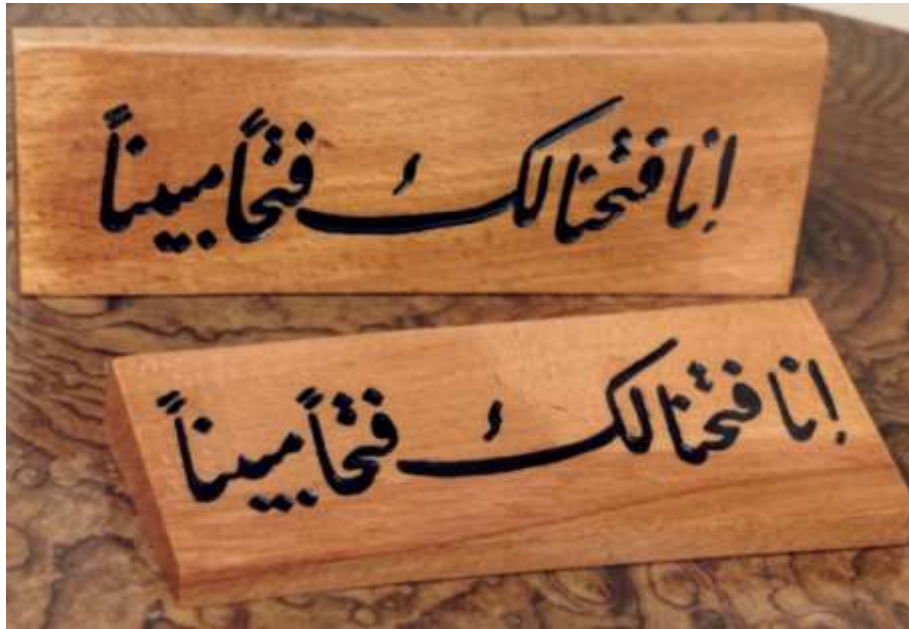 انا فتحنا لك فتحاً مبيناً
انا فتحنا لك فتحاً مبيناً